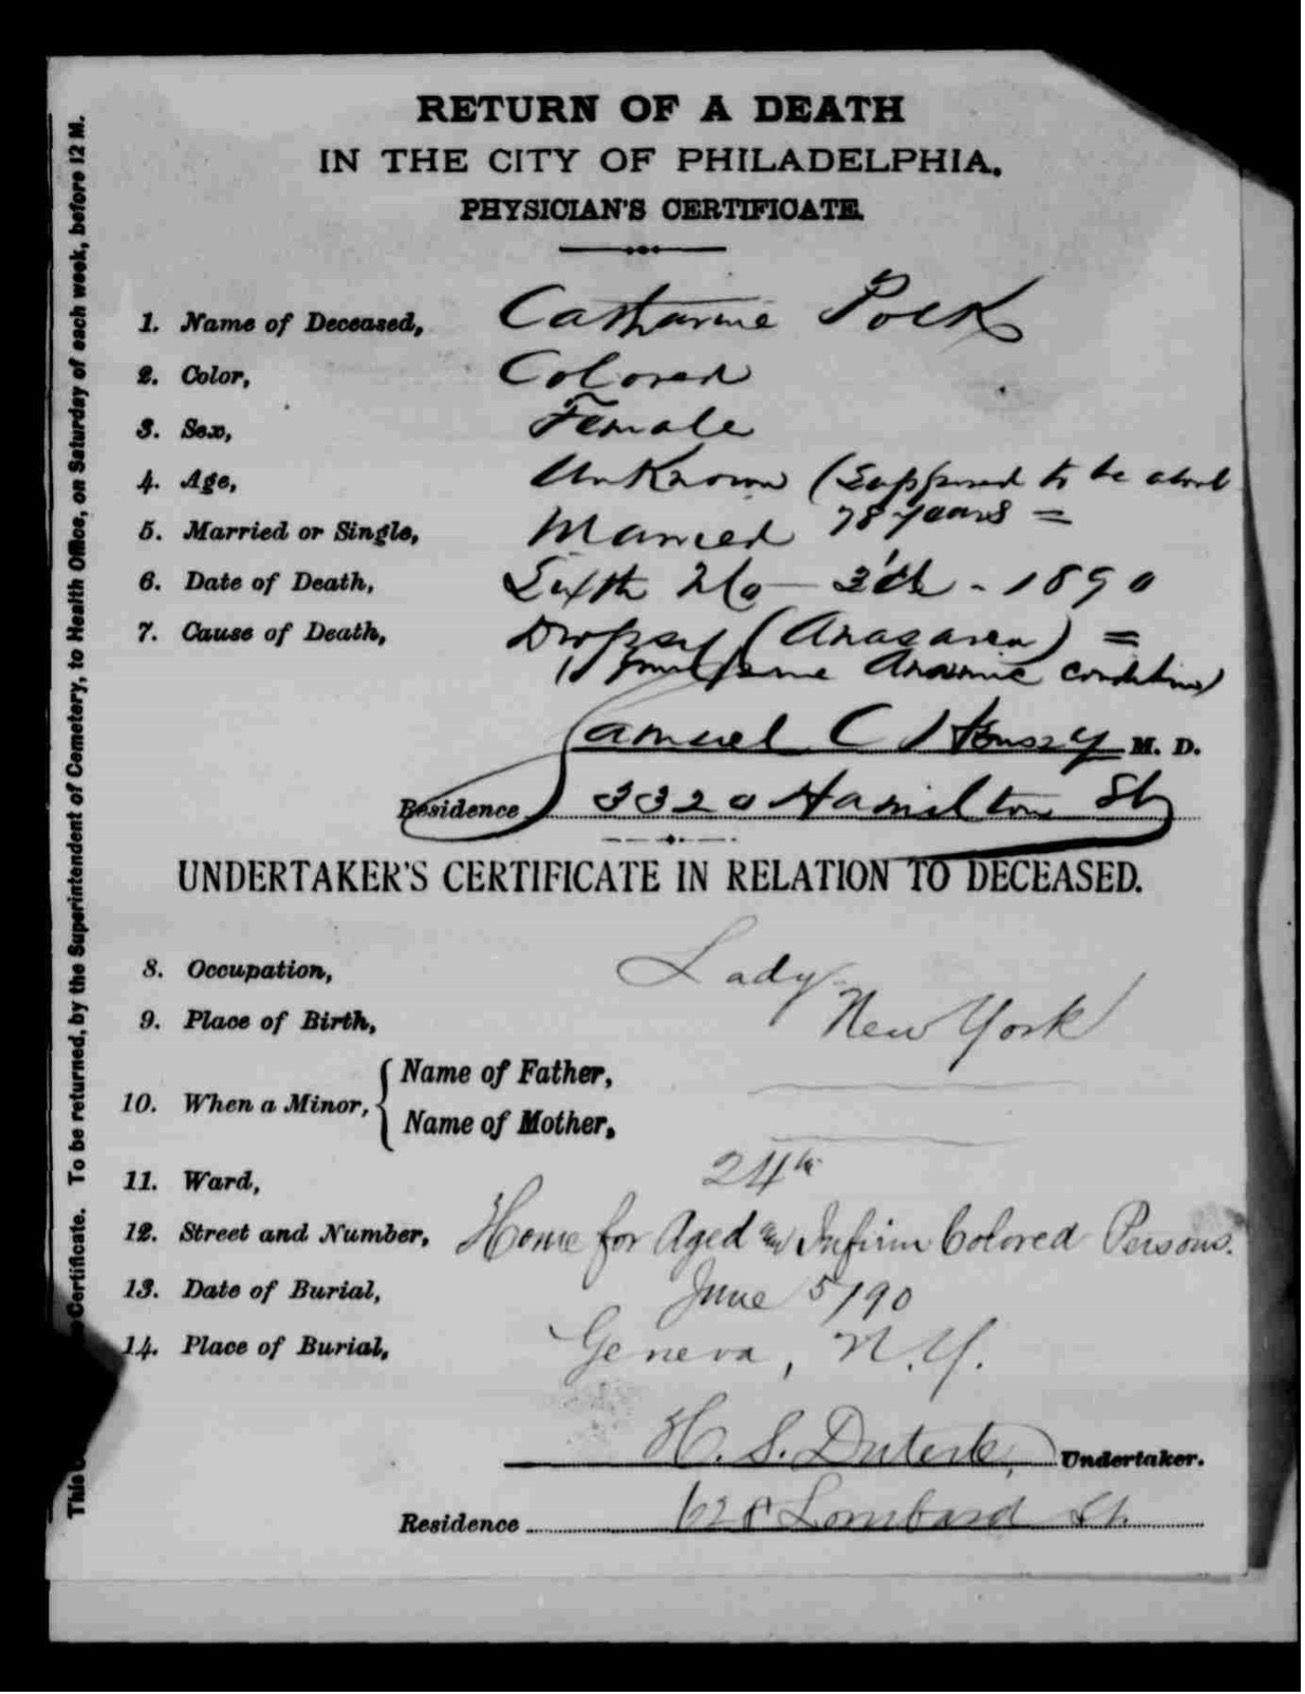 RETURN OF A DEATH
IN THE CITY OF PHILADELPHIA.
PHYSICIAN'S CERTIFICATE.
1. Name of Deceased, Catharine Polk
2. Color, Colored
3. Sex, Female
4. Age, Unknown (Supposed to be about
78 years =
5. Married or Single, Married
6. Date of Death, Sixth Mo - 3'd - 1890
7. Cause of Death, Dropsy (Anasarca) =
Anaemic condition)
Samuel C M. D.
Residence 3320 Hamilton St
UNDERTAKER'S CERTIFICATE IN RELATION TO DECEASED.
8. Occupation, Lady
9. Place of Birth, New York
10. When a Minor, { Name of Father,
Name of Mother,
11. Ward, 24th
12. Street and Number, Home for Aged and Infirm Colored Persons.
13. Date of Burial, June 5/90
14. Place of Burial, Geneva, N.Y.
H. S. Duterte, Undertaker.
Residence 628 Lombard St.
This Certificate. To be returned, by the Superintendent of Cemetery, to Health Office, on Saturday of each week, before 12 M.